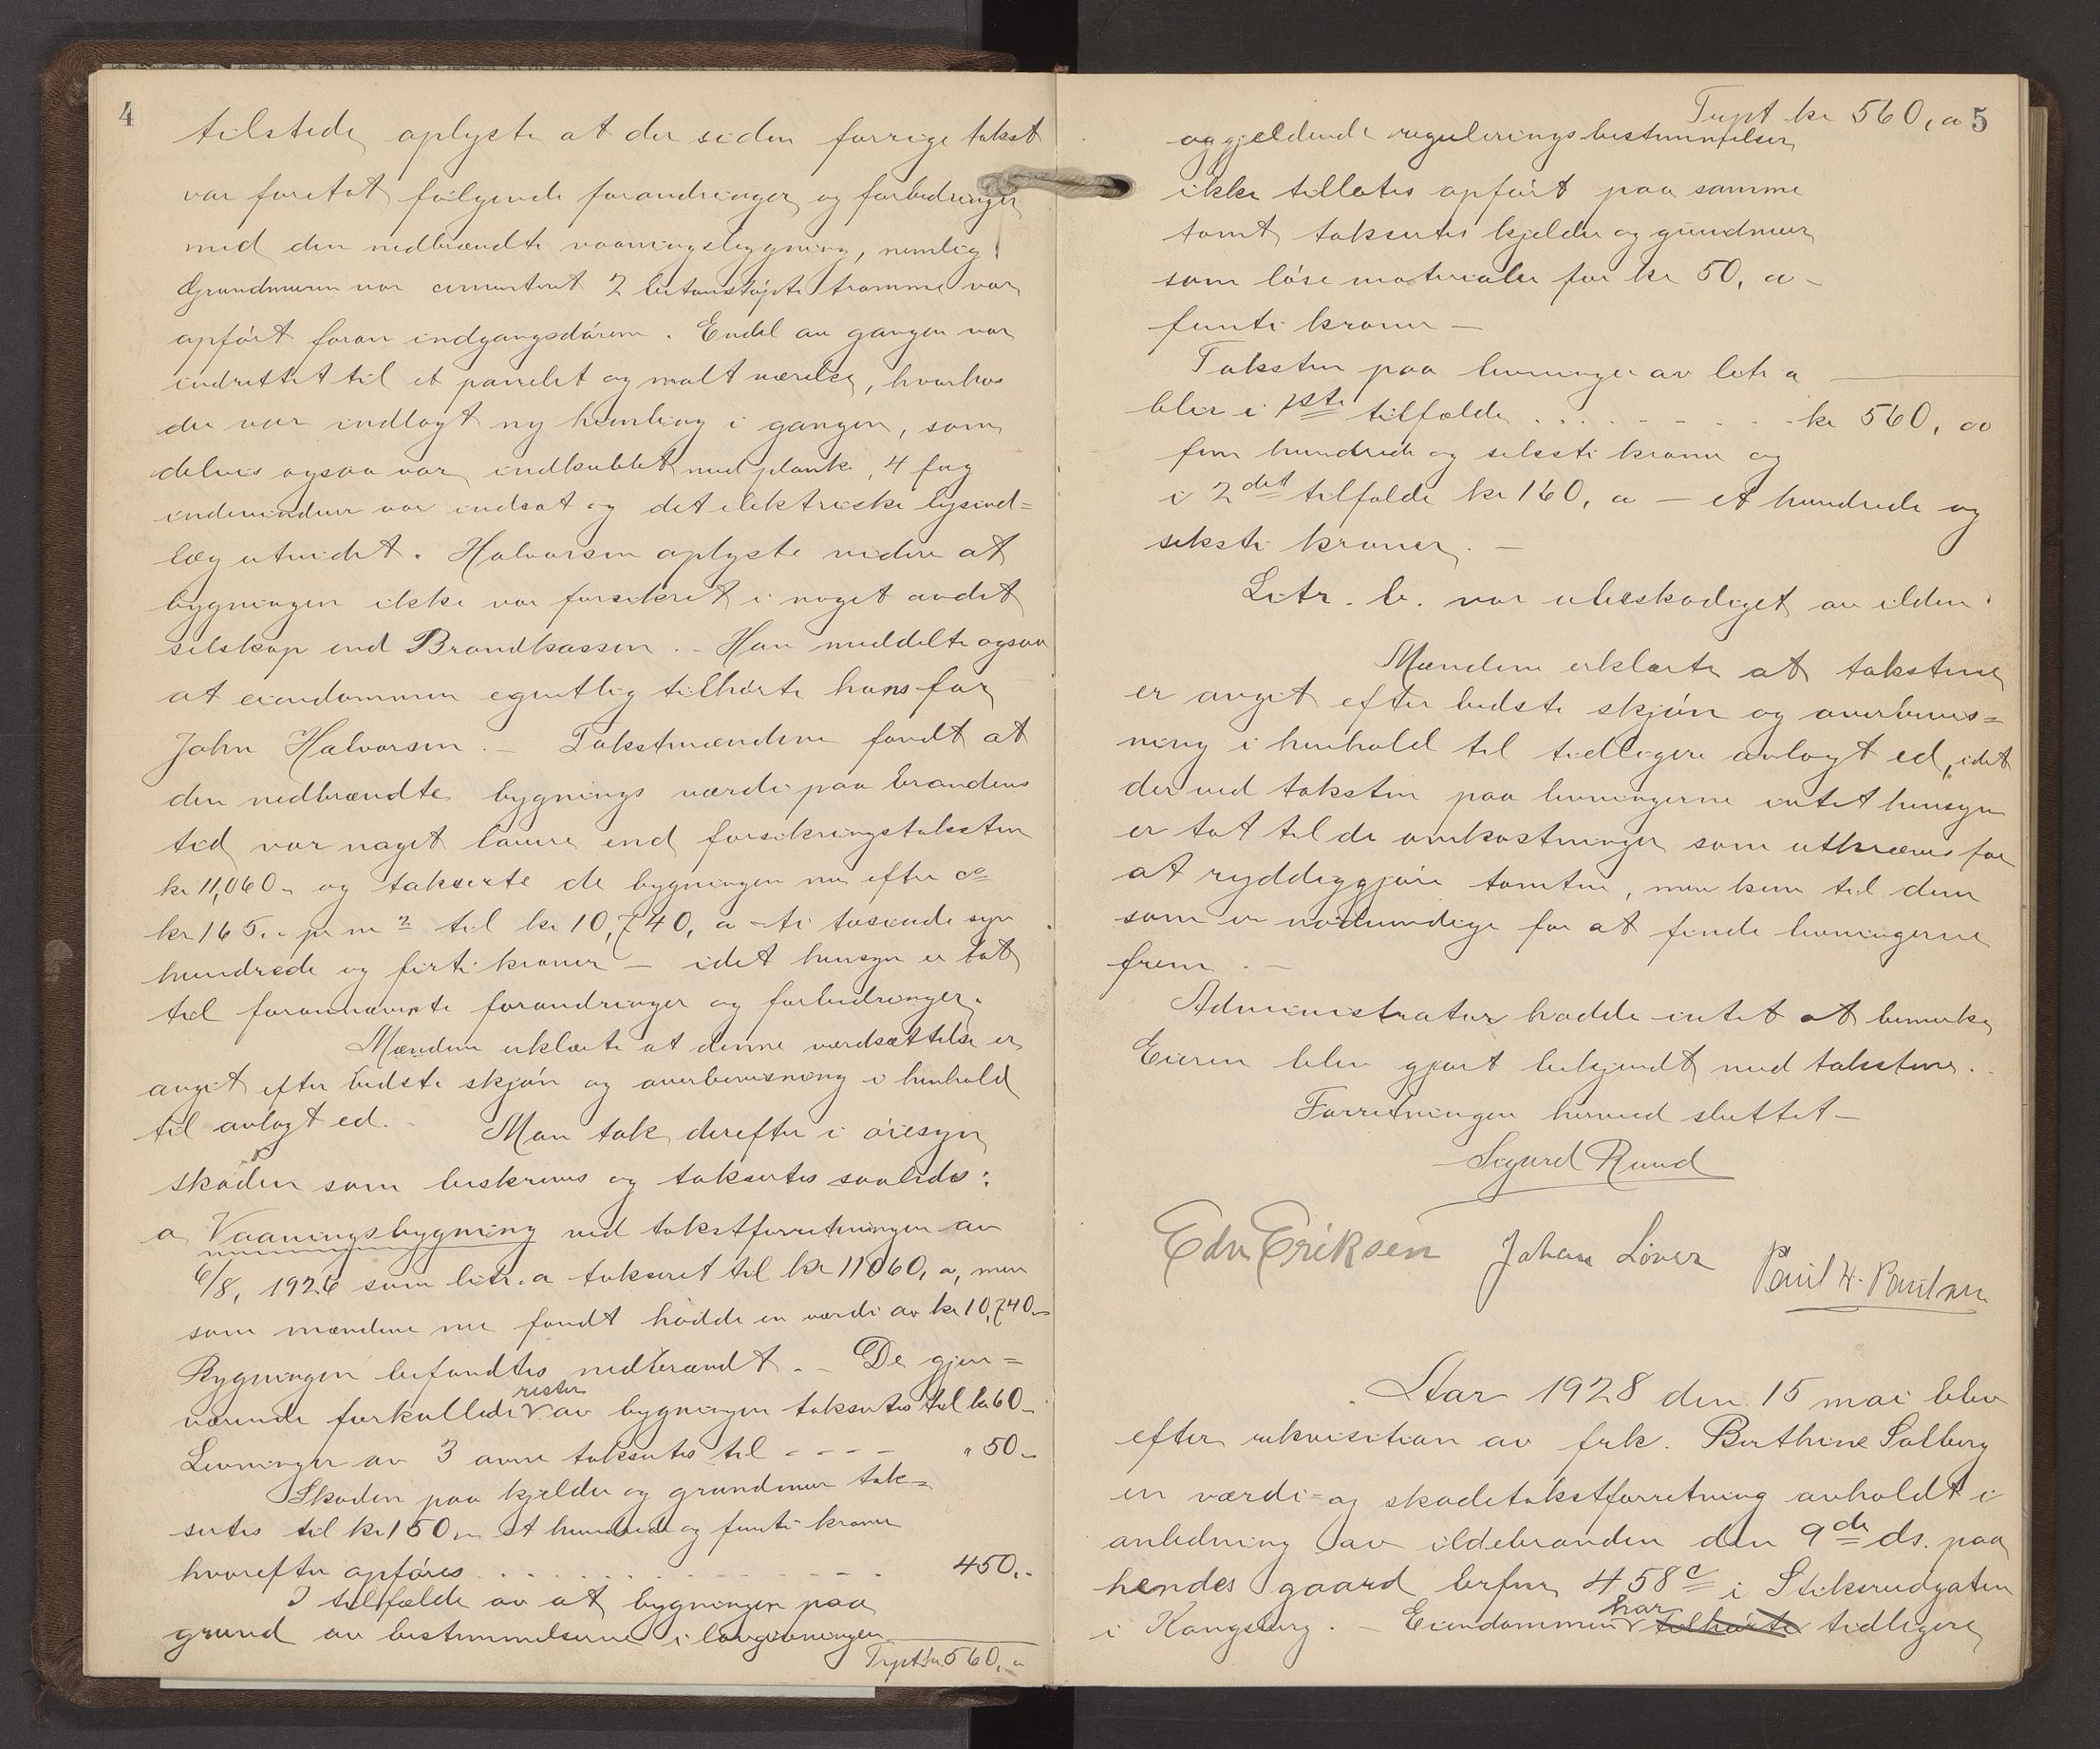 4
tilstede, oplyste at der siden forrige takst
var foretat følgende forandringer og forbedringer
med den nedbrændte vaaningsbygning, nemlig:
Grundmuren var cementert 2 betonstøpte tramme var
opført foran indgangsdøren. Endel av gangen var
indrettet til et panelet og malt værelse, hvorhos
der var indlagt ny himling i gangen, som
delvis ogsaa var indkublet med plank, 4 fag
indervinduer var indsat og det elektriske lysind=
læg utvidet. Halvorsen oplyste videre at
bygningen ikke var forsikret i noget andet
selskap end Brandkassen. - Han meddelte ogsaa
at eiendommen egentlig tilhørte hans far
John Halvorsen. - Takstmændene fandt at
den nedbrændte bygnings værdi paa brandens
tid var noget lavere end forsikringstaksten
kr 11,060.- og takserte de bygningen nu efter ca
kr 165.- pr m² til kr 10,740, oo - ti tusende syv
hundrede og førti kroner - idet hensyn er tat
til forannævnte forandringer og forbedringer.
Mændene erklærte at denne værdsættelse er
avgit efter bedste skjøn og overbevisning i henhold
til avlagt ed. - Man tok derefter i øiesyn
skaden som beskrives og taksertes saaledes:
a, Vaaningsbygning ved takstforretningen av
6/8, 1926 som litr. a taksert til kr 11060, oo, men
som mændene nu fandt hadde en værdi av kr 10,740.-
Bygningen befandtes nedbrændt. - De gjen=
værende forkullede rester av bygningen taksertes til kr 60.-
Levninger av 3 ovne taksertes til - - - - " 50.-
Skaden paa kjelder og grundmur tak=
sertes til kr 150.- et hundrede og femti kroner
hvorefter opføres . . . . . . . . . . . 450.-
I tilfælde av at bygningen paa
grund av bestemmelserne i lovgivningen
Trpt kr. 560, oo
Trpt kr 560, oo 5
og gjeldende reguleringsbestemmelser
ikke tillates opført paa samme
tomt, taksertes kjelder og grundmur
som løse materialer for kr 50, oo -
femti kroner -
Taksten paa levninger av litr a
blir i 1ste tilfælde . . . . . . . . . kr 560, oo
fem hundrede og seksti kroner og
i 2det tilfælde kr 160, oo - et hundrede og
seksti kroner. -
Litr. b. var ubeskadiget av ilden.
Mændene erklærte at takstene
er avgit efter bedste skjøn og overbevis=
ning i henhold til tidligere avlagt ed, idet
der ved taksten paa levningerne intet hensyn
er tat til de omkostninger som utkræves for
at ryddiggjøre tomten, men kun til dem
som er nødvendige for at finde levningerne
frem. -
Administrator hadde intet at bemerke
Eieren blev gjort bekjendt med takstene. -
Forretningen hermed sluttet -
Sigurd Ruud
Edv. Eriksen Johan Löver Paul H. Paulsen
Aar 1928 den 15 mai blev
efter rekvisition av frk. Berthine Solberg
en værdi- og skadetakstforretning avholdt i
anledning av ildebranden den 9de ds. paa
hendes gaard brfnr 458c i Stiksrudgaten
i Kongsberg. - Eiendommen har tilhørte tidligere